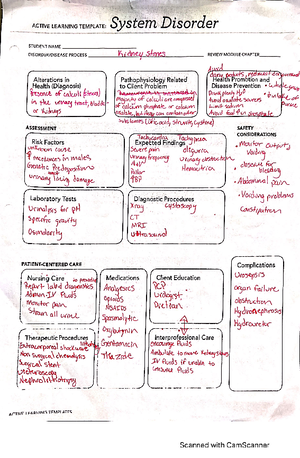 ACTIVE LEARNING TEMPLATE: System Disorder
STUDENT NAME
DISORDER/DISEASE PROCESS Kidney Stones
REVIEW MODULE CHAPTER
Alterations in
Health (Diagnosis)
presence of calculi (stones)
in the urinary tract, bladder
or kidneys
Pathophysiology Related
to Client Problem
Majority of calculi are composed
of calcium phosphate or calcium
oxalate, but they can contain other
substances (uric acid, struvite, cystine)
Health Promotion and
Disease Prevention
limit sodium
ASSESSMENT
SAFETY
CONSIDERATIONS
Risk Factors
unknown cause
↑ incidence in males
Genetic Predisposition
urinary lining damage
Expected Findings
Tachycardia Tachypnea
Severe pain oliguria
Urinary frequency
urinary obstruction
Fever
Pallor
hematuria
BP
• Monitor output/
voiding
• observe for
bleeding
• Abdominal pain
• Voiding problems
Constipation
Laboratory Tests
Urinalysis for pH
Specific gravity
Osmolarity
Diagnostic Procedures
Xray cystoscopy
CT
MRI
Ultrasound
PATIENT-CENTERED CARE
Complications
Urosepsis
organ failure
obstruction
Hydronephrosis
Hydroureter
Nursing Care
Report lab & diagnostics
Admin IV fluids
Monitor pain
Strain all urine
Medications
Analgesics
Opioids
NSAIDs
Spasmolytic
Oxybutynin
Gentamicin
Thiazide
Client Education
PCP
Urologist
Dietitian
Therapeutic Procedures
Extracorporeal shockwave
Non surgical chemolysis
Surgical stent
Ureteroscopy
Nephrolithotomy
Interprofessional Care
encourage fluids
Ambulate to move kidney stones
IV fluids if unable to
consume fluids
ACTIVE LEARNING TEMPLATES
Scanned with CamScanner